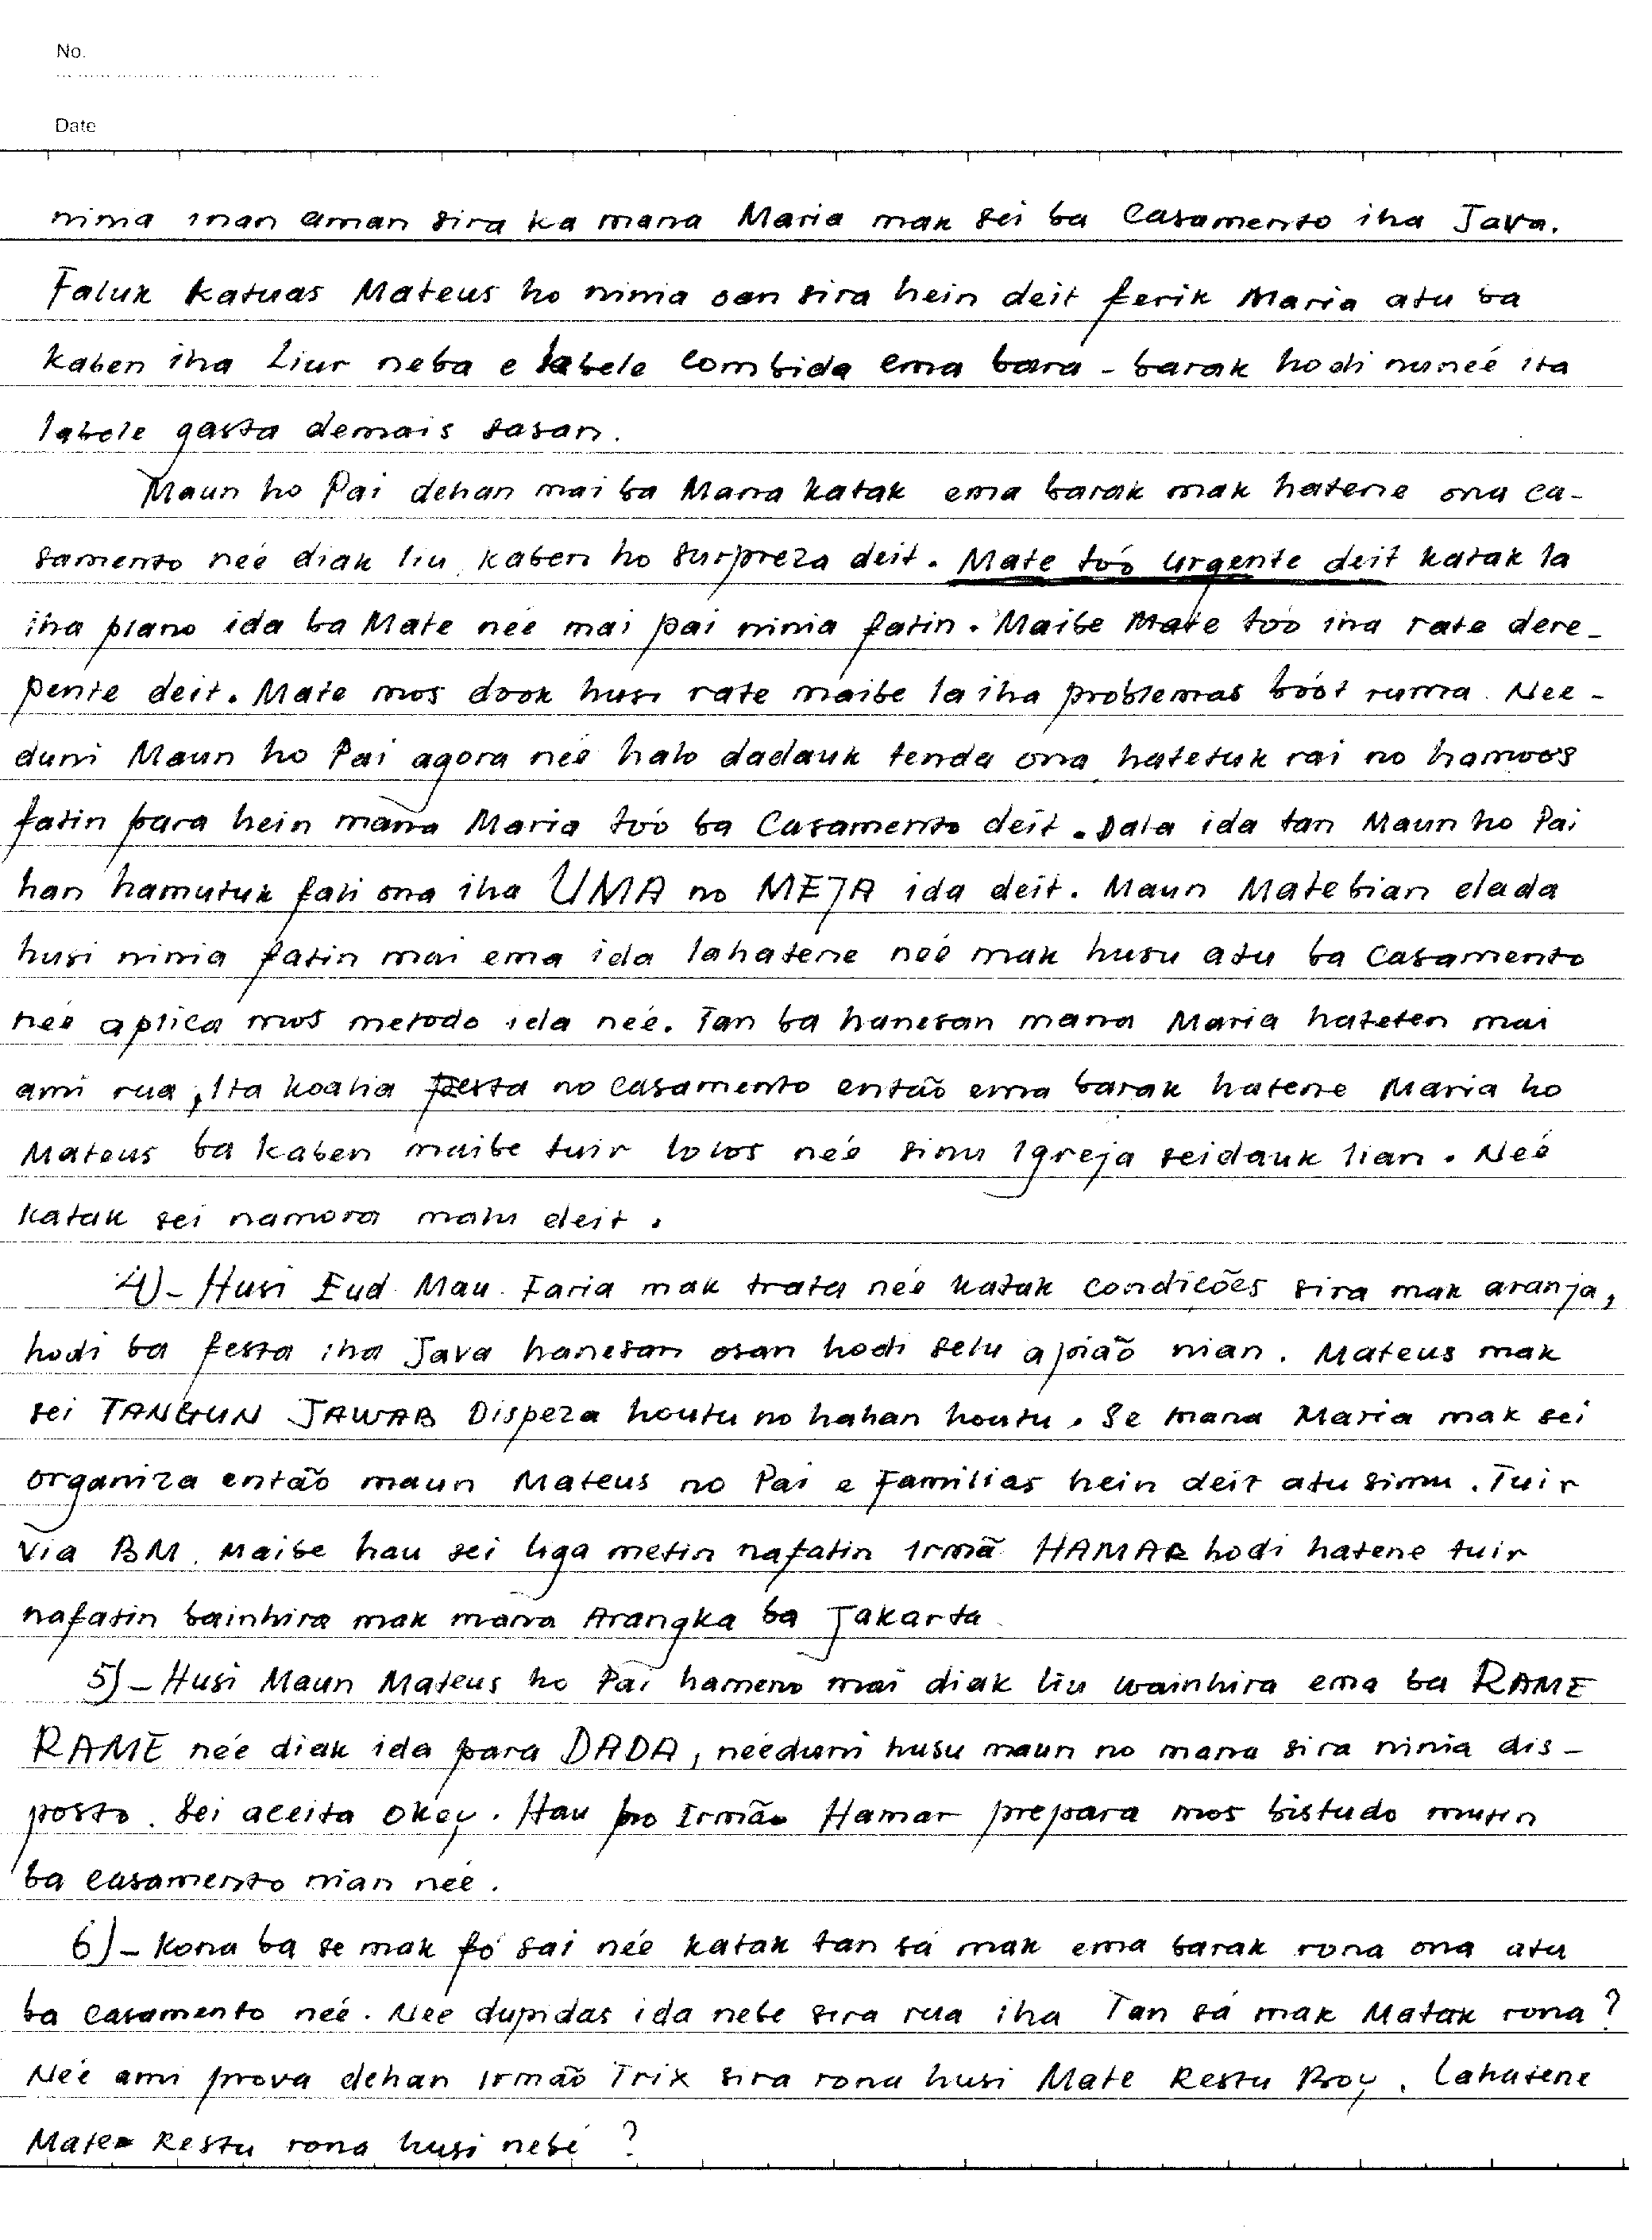 No.
Date
ninia inan aman sira ka mana Maria mak sei ba Casamento iha Java.
Faluk Katuas Mateus ho ninia oan sira hein deit ferik Maria atu ba
kaben iha Liur neba e labele combida ema bara - barak hodi nuneé ita
labele gasta demais sasan.
Maun ho Pai dehan mai ba Mana katak ema barak mak hatene ona ca-
samento neé diak liu kaben ho surpreza deit. Mate tóo urgente deit katak la
iha plano ida ba Mate neé mai pai ninia fatin. Maibe Mate tóo iha rate dere-
pente deit. Mate mos dook husi rate maibe la iha problemas bóot ruma. Nee-
duni Maun ho Pai agora neé halo dadauk tenda ona hatetuk rai no hamoos
fatin para hein mana Maria tóo ba Casamento deit. Dala ida tan Maun ho Pai
han hamutuk fali ona iha UMA no MEJA ida deit. Maun Matebian elada
husi ninia fatin mai ema ida lahatene neé mak husu atu ba Casamento
neé aplica mos metodo ida neé. Tan ba hanesan mana Maria hateten mai
ami rua, Ita koalia festa no casamento então ema barak hatene Maria ho
Mateus ba kaben maibe tuir lolos neé sinu Igreja seidauk lian. Neé
katak sei namora malu deit.
4)- Husi Eud Mau Faria mak trata neé katak condições sira mak aranja,
hodi ba festa iha Java hanesan osan hodi selu apião nian. Mateus mak
sei TANGUN JAWAB Dispeza houtu no hahan houtu. Se mana Maria mak sei
organiza então maun Mateus no Pai e Familias hein deit atu simu. Tuir
via BM. Maibe hau sei liga metin nafatin Irmã HAMAR hodi hatene tuir
nafatin bainhira mak mana Arangka ba Jakarta
5)- Husi Maun Mateus ho Pai hameno mai diak liu wainhira ema ba RAME
RAME neé diak ida para DADA, neéduni husu maun no mana sira ninia dis-
posto. Sei aceita okey. Hau ho Irmão Hamar prepara mos bistudo mutin
ba casamento nian neé.
6)- Kona ba se mak fó sai neé katak tan sá mak ema barak rona ona atu
ba casamento neé. Neé dupidas ida nebe sira rua iha Tan sá mak Matak rona?
Neé ami prova dehan Irmão Trix sira rona husi Mate Restu Boy. Lahatene
Mate Restu rona husi nebé ?